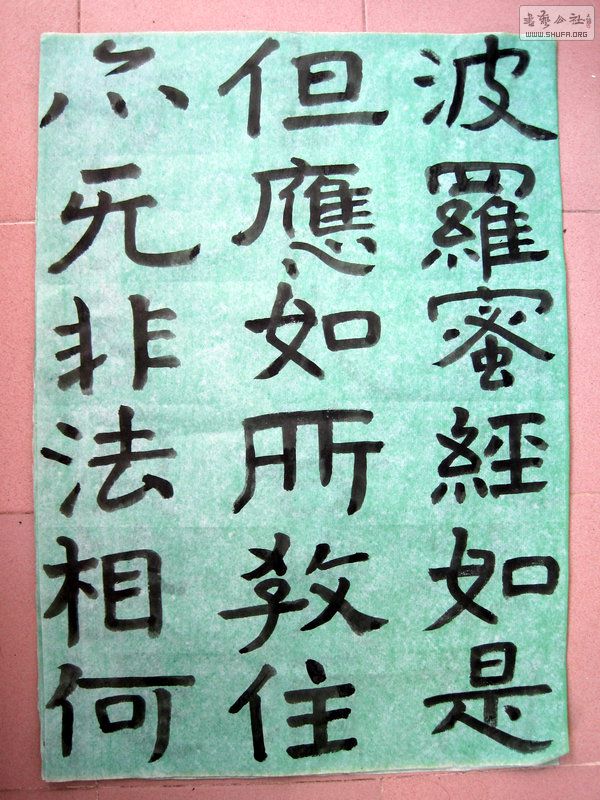 波羅蜜經如是
但應如所教住
亦无非法相何
书艺公社
WWW.SHUFA.ORG